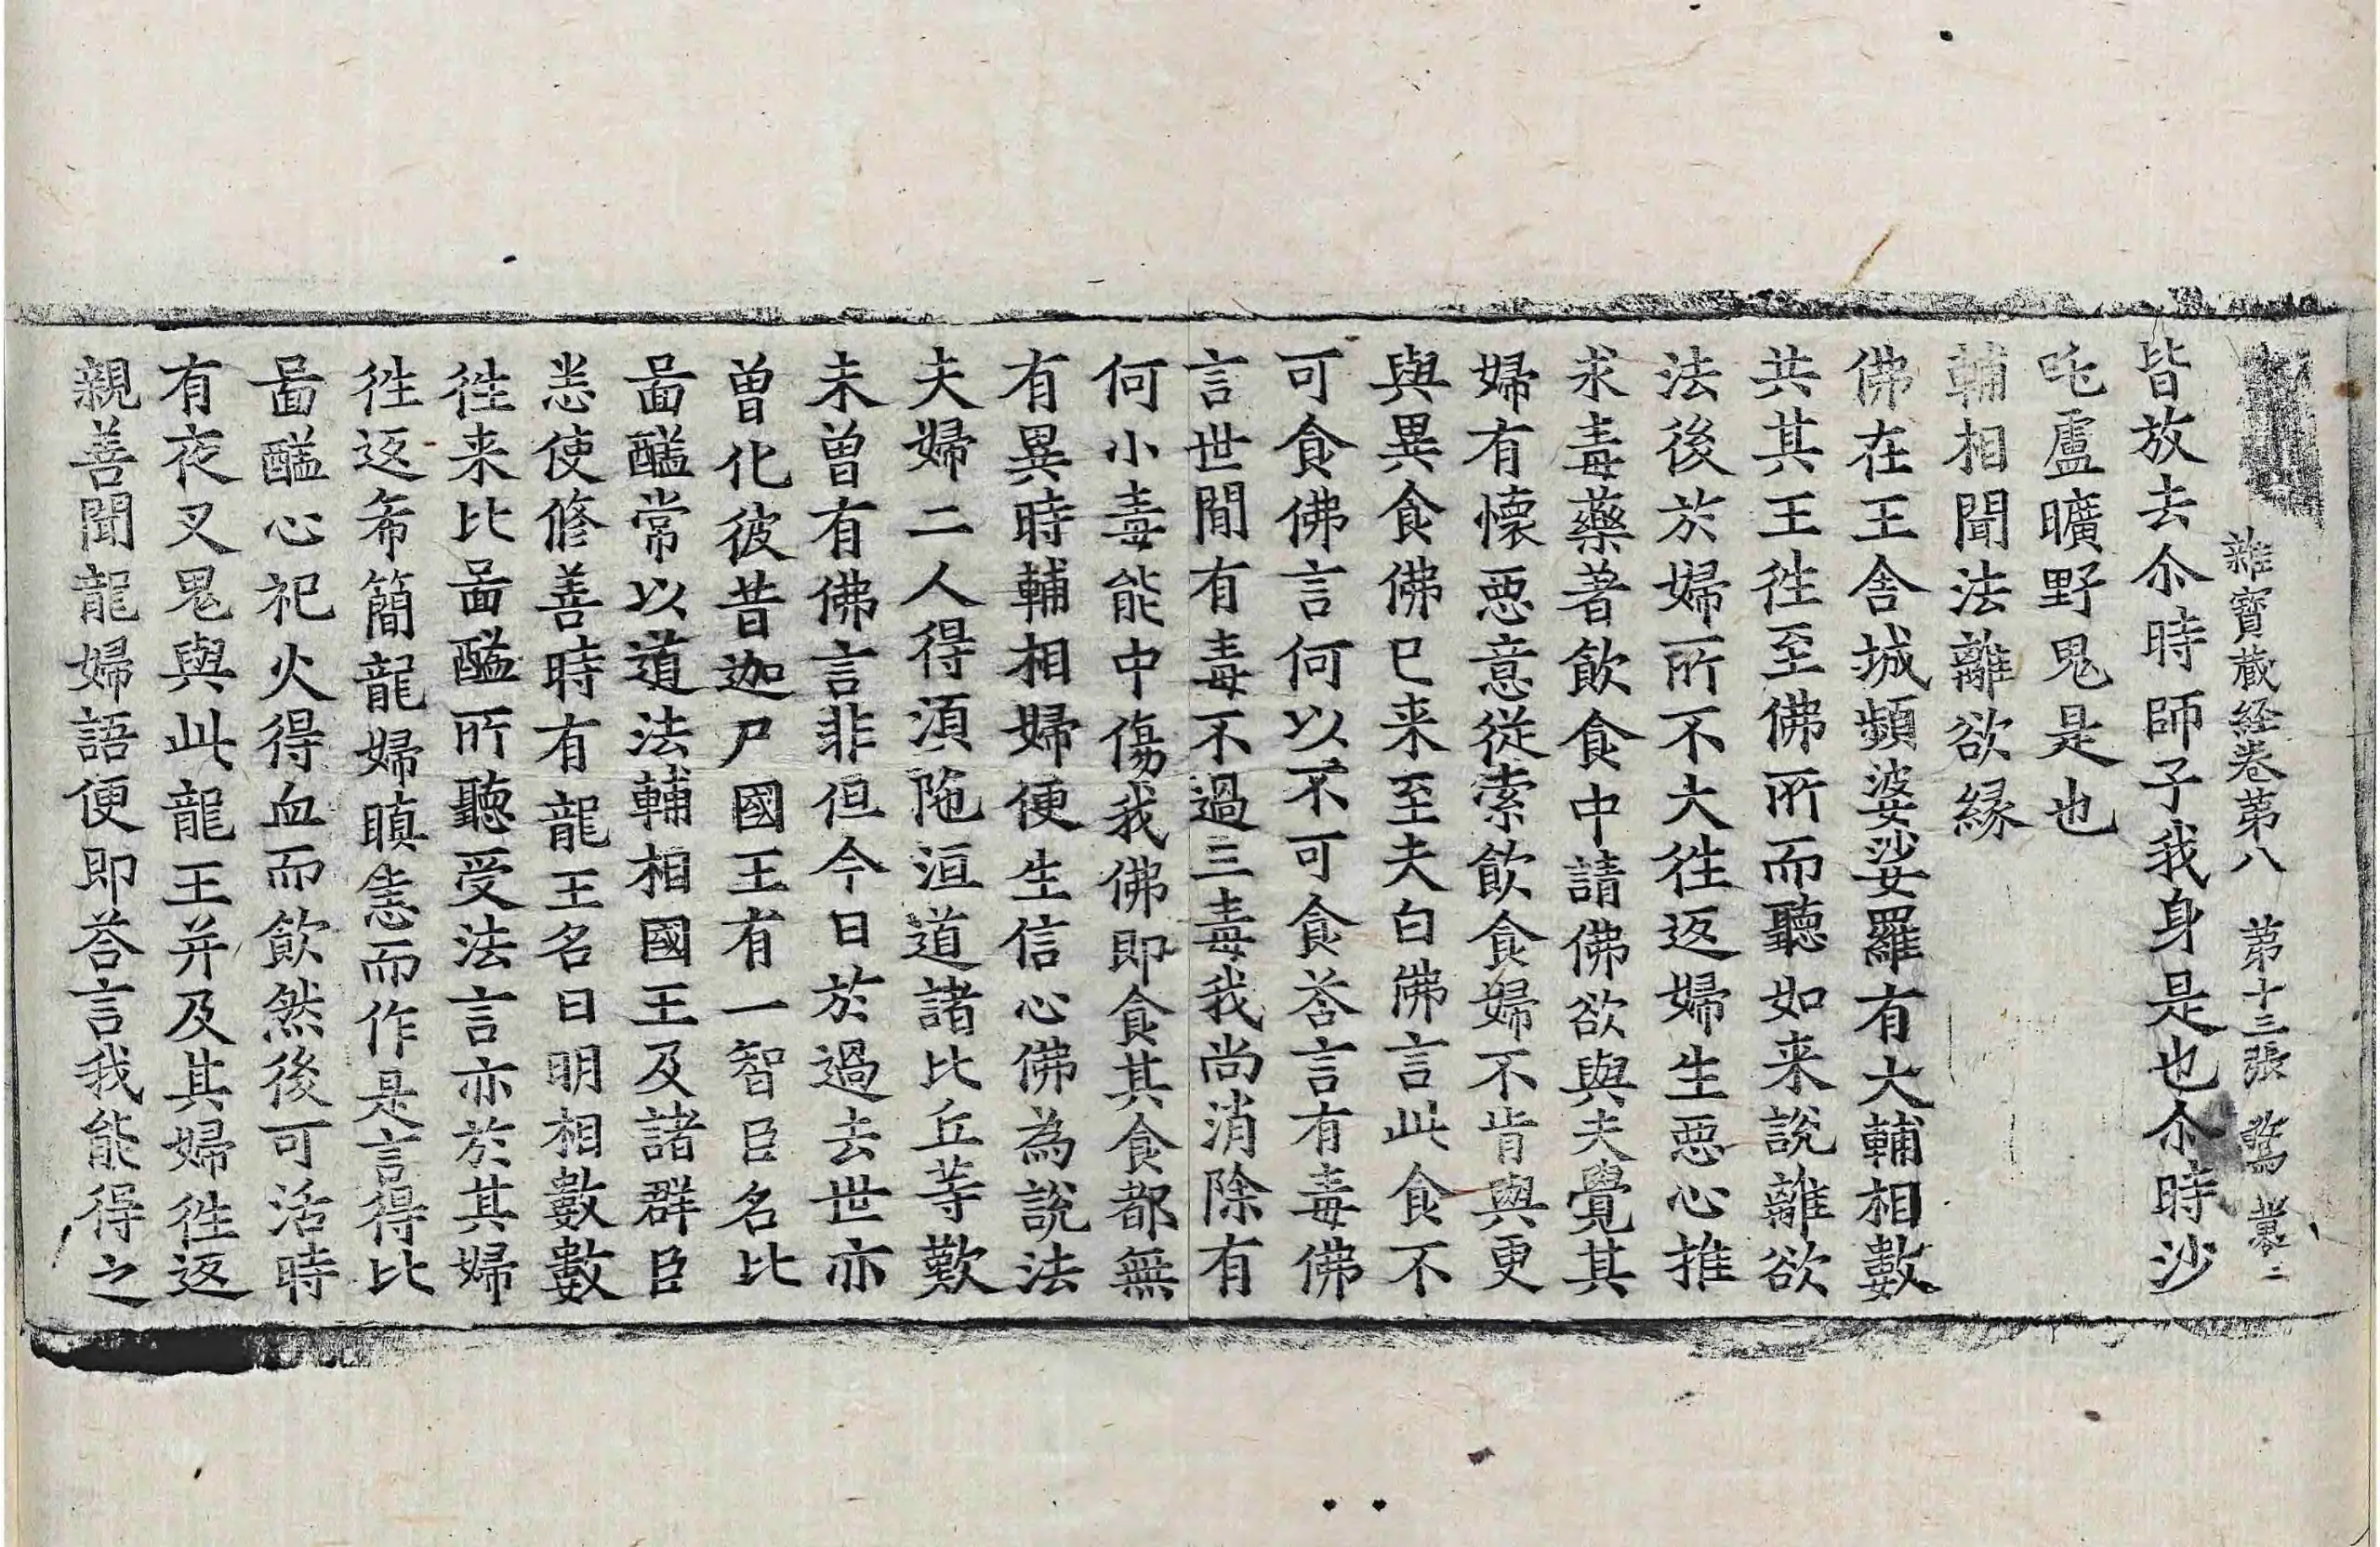 雜寶蔵経卷第八 第十三張
皆放去尒時師子我身是也尒時沙
吒盧曠野鬼是也
輔相聞法離欲縁
佛在王舍城頻婆娑羅有大輔相數
共其王徃至佛所而聽如来說離欲
法後於婦所不大徃返婦生惡心推
求毒藥著飲食中請佛欲與夫覺其
婦有懷惡意従索飲食婦不肯與更
與異食佛已来至夫白佛言此食不
可食佛言何以不可食荅言有毒佛
言世閒有毒不過三毒我尚消除有
何小毒能中傷我佛即食其食都無
有異時輔相婦便生信心佛為說法
夫婦二人得湏陁洹道諸比丘等歎
未曽有佛言非但今日於過去世亦
曽化彼昔迦尸國王有一智臣名比
啚醯常以道法輔相國王及諸群臣
恙使修善時有龍王名曰明相數數
徃来比啚醯所聽受法言亦於其婦
徃返希簡龍婦瞋恚而作是言得比
啚醯心祀火得血而飲然後可活時
有夜叉鬼與此龍王并及其婦徃返
親善聞龍婦語便即荅言我能得之